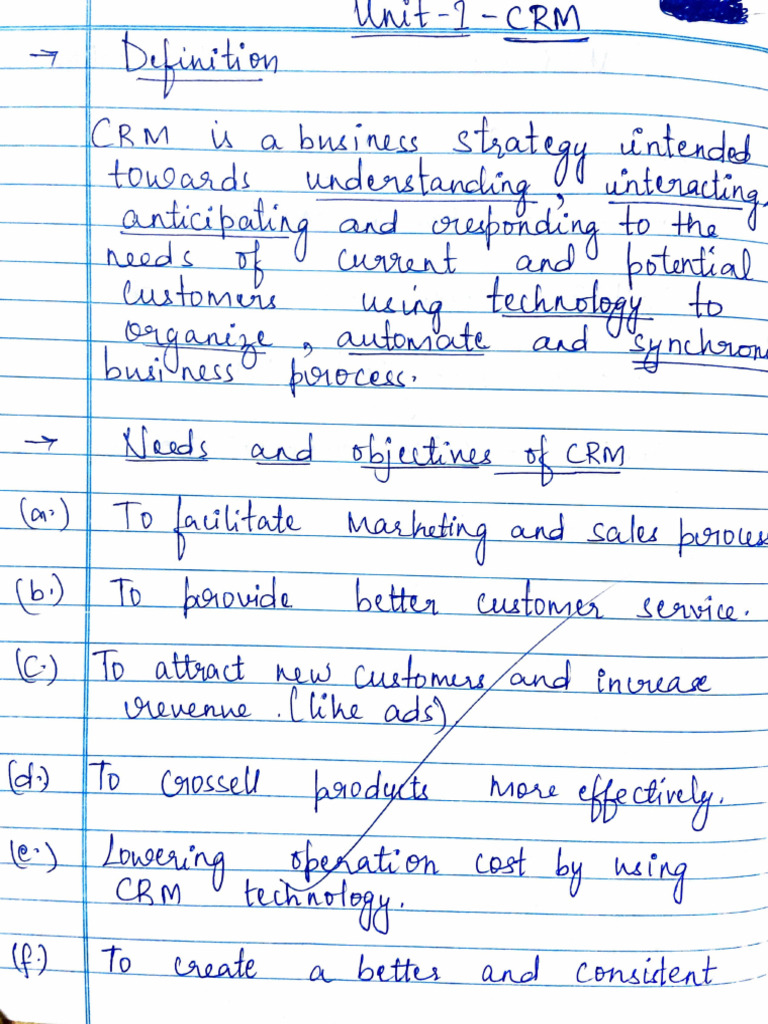 Unit-1-CRM
→ Definition
CRM is a business strategy intended
towards understanding, interacting,
anticipating and responding to the
needs of current and potential
customers using technology to
organize, automate and synchron
business process.
→ Needs and objectives of CRM
(a.) To facilitate marketing and sales proces
(b.) To provide better customer service.
(c.) To attract new customers and increase
revenue. (like ads)
(d.) To crossell products more effectively.
(e.) Lowering operation cost by using
CRM technology.
(f.) To create a better and consistent